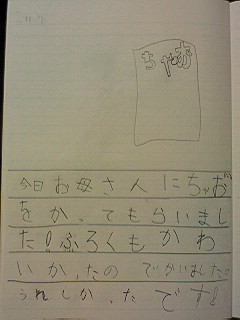 ちゃお
今日お母さんにちゃお
をかってもらいまし
た!ふろくもかわ
いかったの でかいました。
うれしかったです!